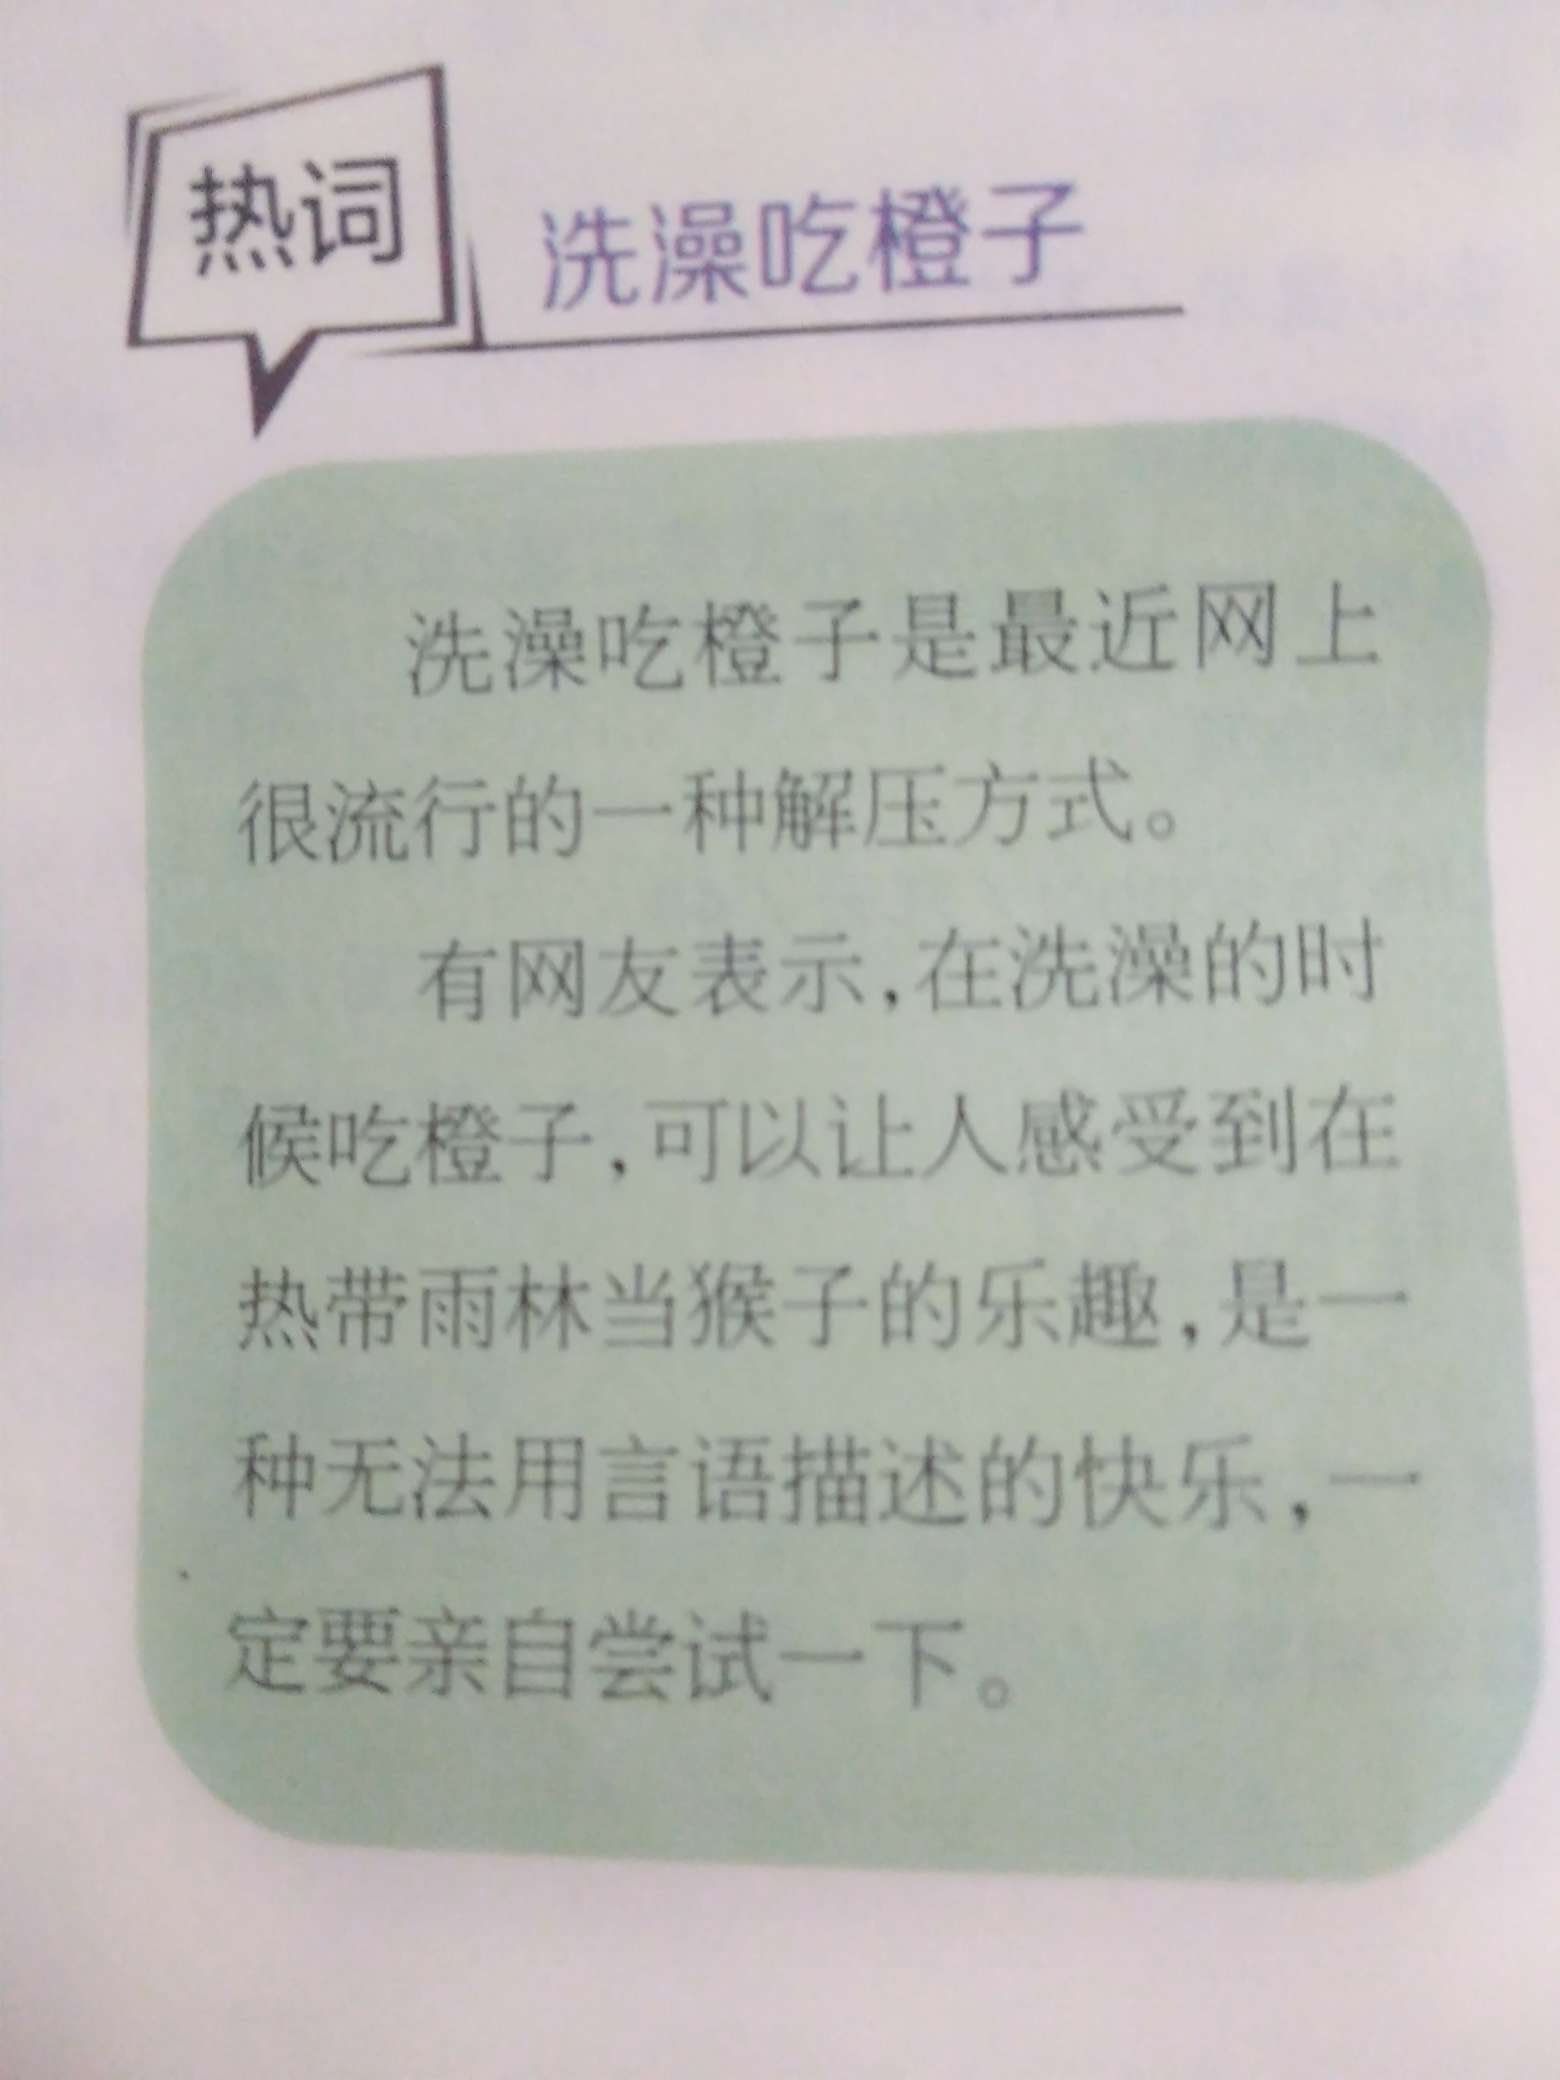 热词
洗澡吃橙子
洗澡吃橙子是最近网上
很流行的一种解压方式。
有网友表示,在洗澡的时
候吃橙子,可以让人感受到在
热带雨林当猴子的乐趣,是一
种无法用言语描述的快乐,一
定要亲自尝试一下。